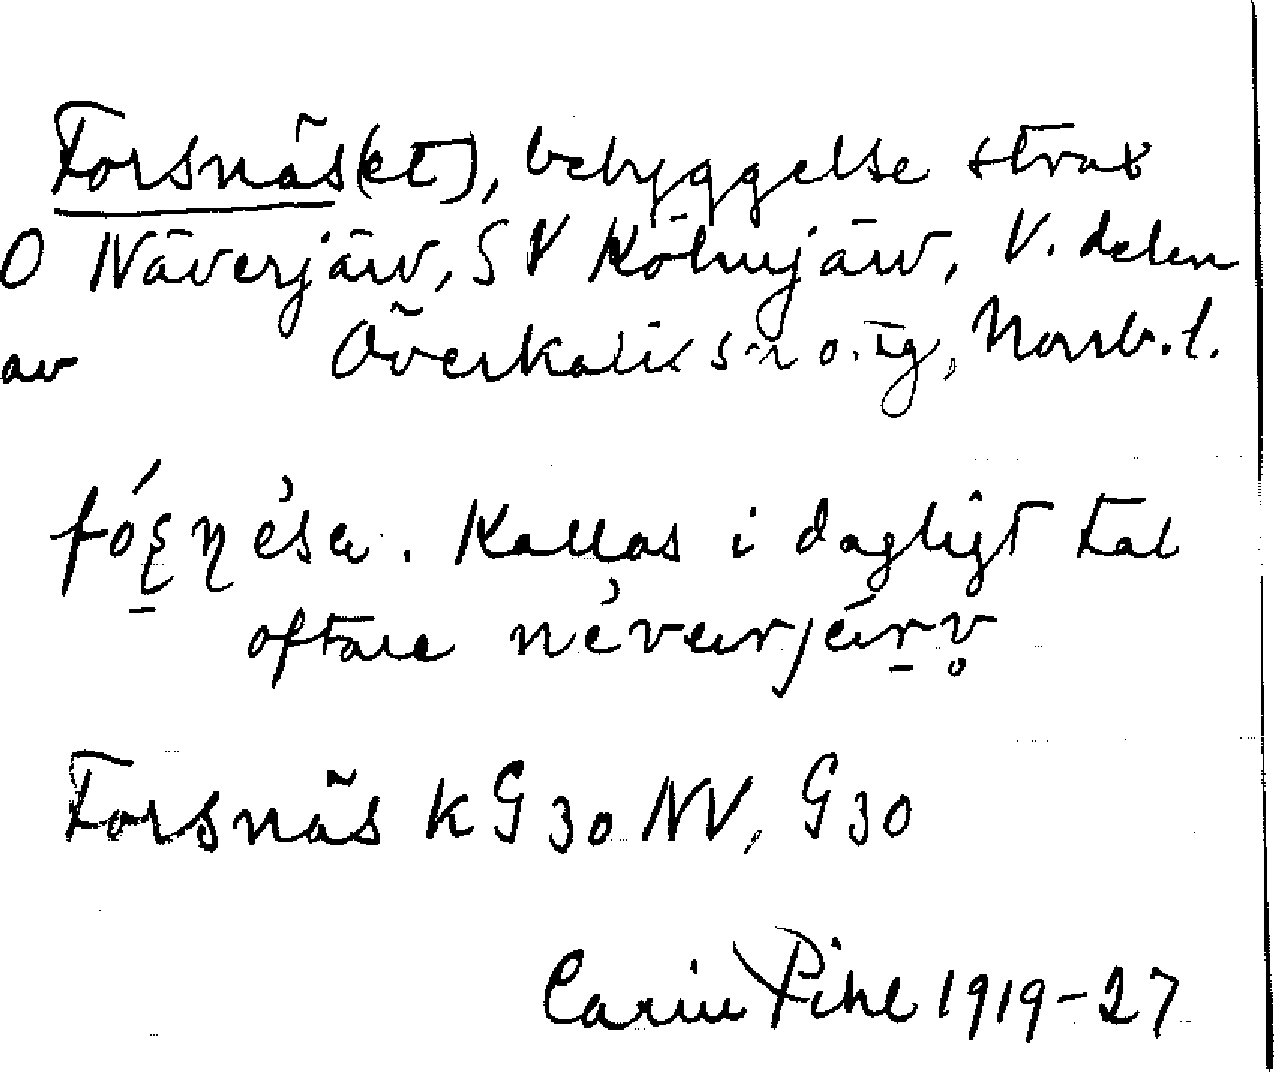 Forsnäs(et), bebyggelse strax
O Näverjärv, SV Kölmjärv, V. delen
av Överkalix sn o. tg, Norrb. l.
Kallas i dagligt tal
oftare
Forsnäs k G 30 NV, G 30
Carin Pihl 1919-27